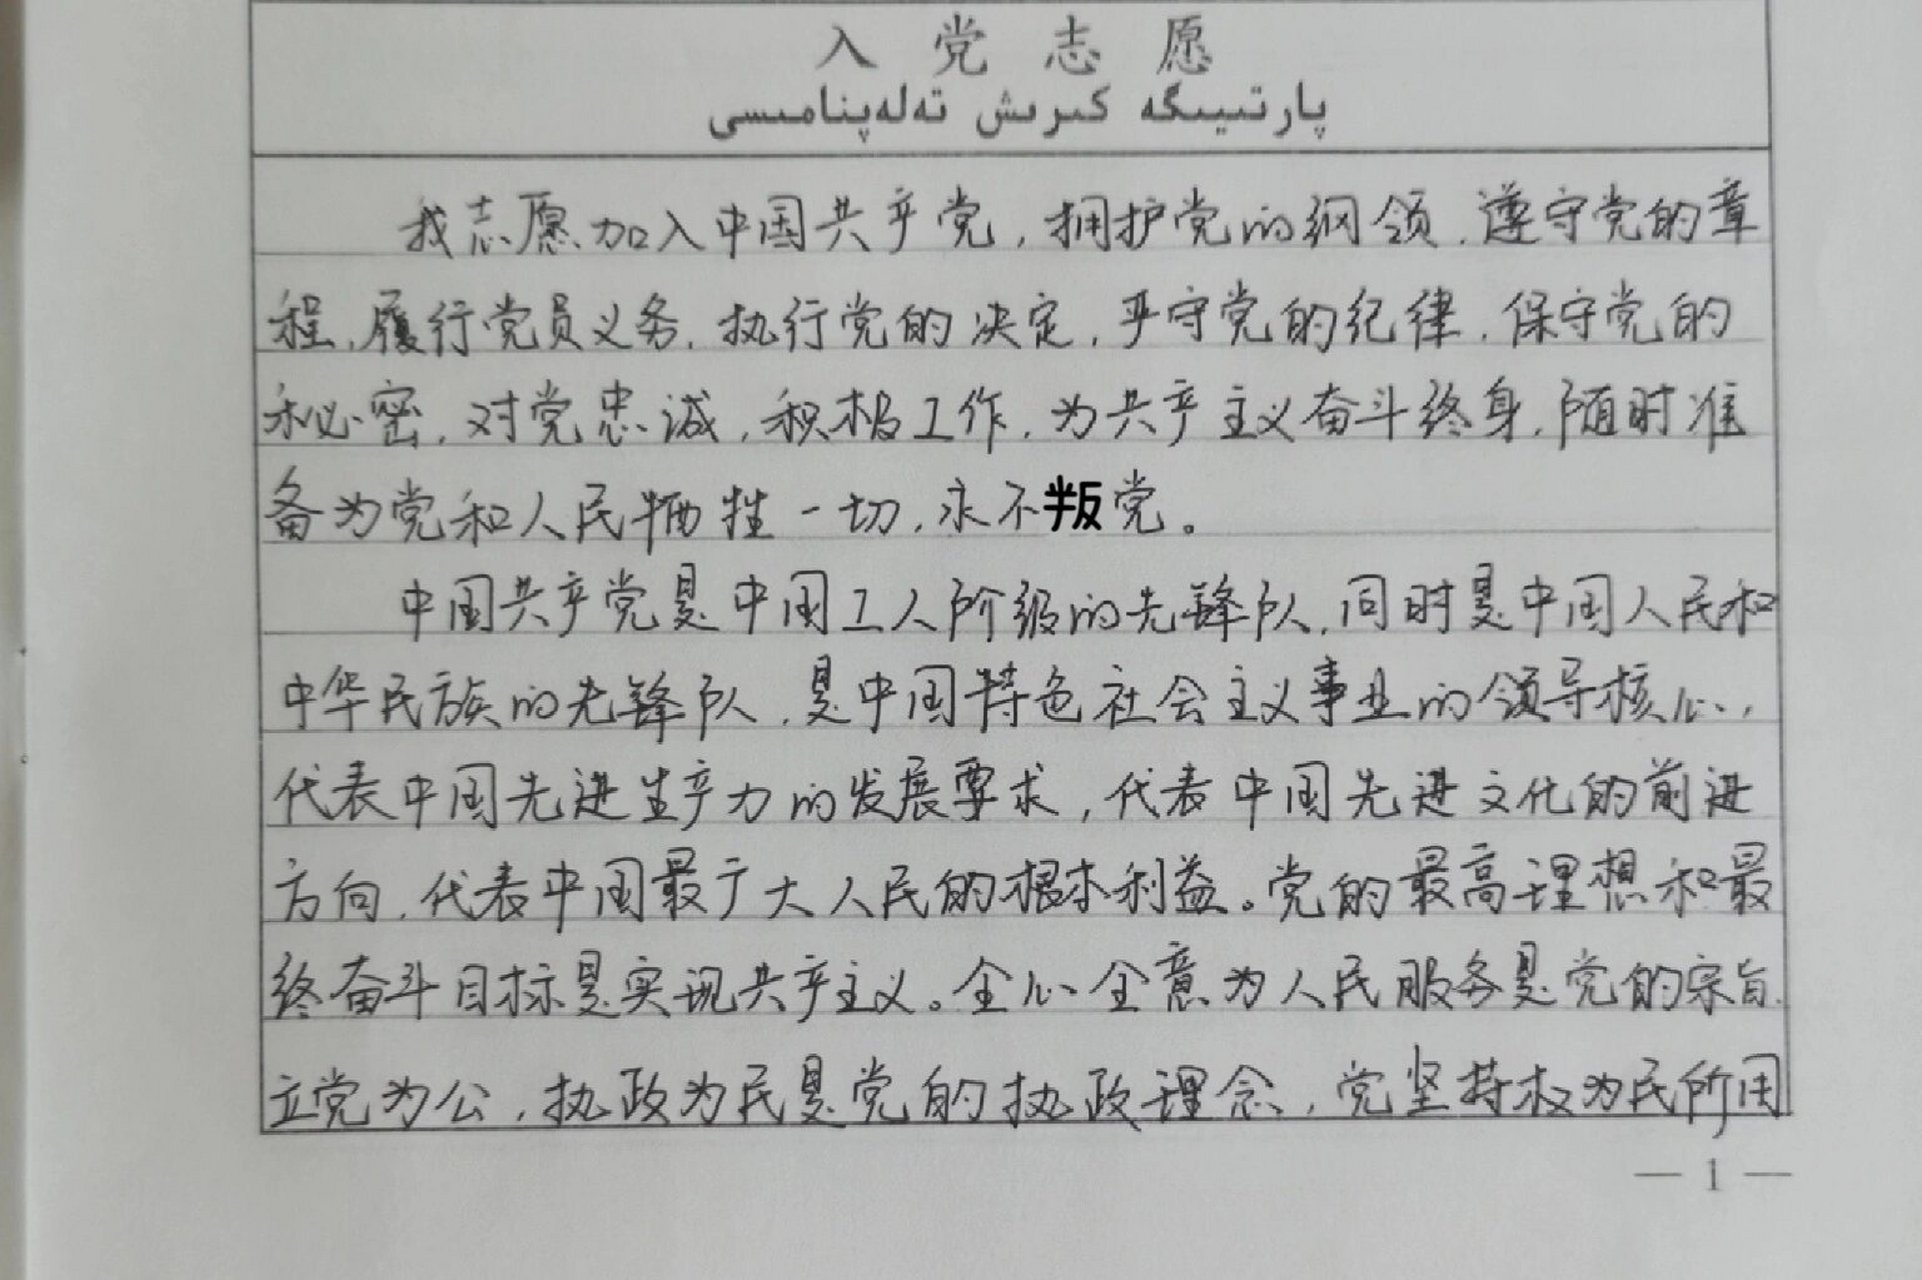 入党志愿
پارتىيىگە كىرىش تەلەپنامىسى
我志愿加入中国共产党,拥护党的纲领,遵守党的章
程,履行党员义务,执行党的决定,严守党的纪律,保守党的
秘密,对党忠诚,积极工作,为共产主义奋斗终身,随时准
备为党和人民牺牲一切,永不叛党。
中国共产党是中国工人阶级的先锋队,同时是中国人民和
中华民族的先锋队,是中国特色社会主义事业的领导核心,
代表中国先进生产力的发展要求,代表中国先进文化的前进
方向,代表中国最广大人民的根本利益。党的最高理想和最
终奋斗目标是实现共产主义。全心全意为人民服务是党的宗旨,
立党为公,执政为民是党的执政理念,党坚持权为民所用
— 1 —